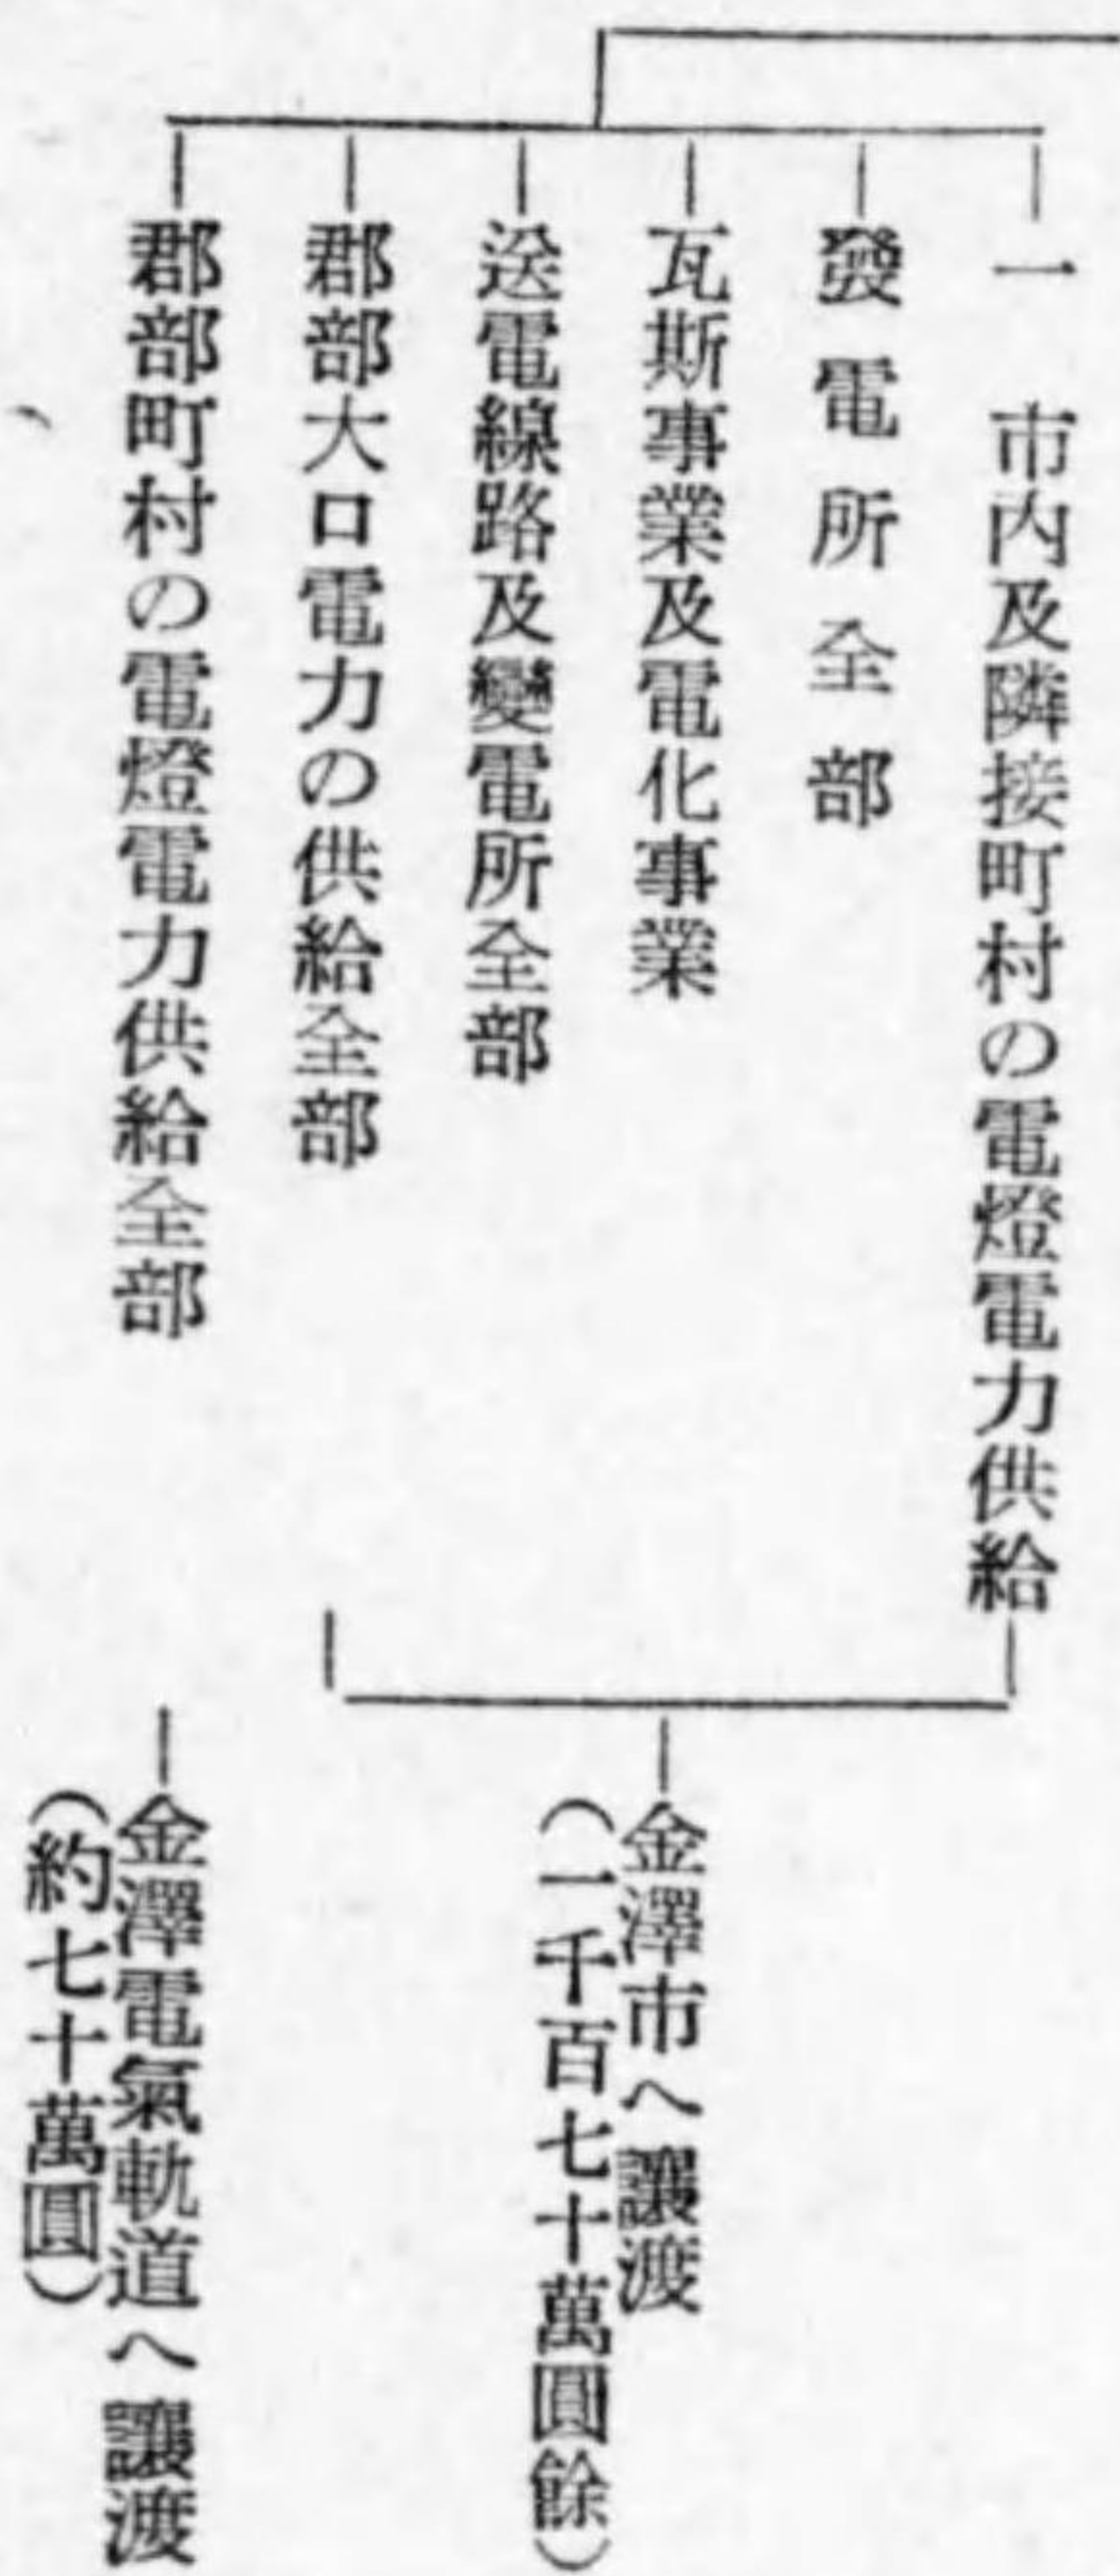 一 市内及隣接町村の電燈電力供給
發電所全部
瓦斯事業及電化事業
送電線路及變電所全部
郡部大口電力の供給全部
郡部町村の電燈電力供給全部
金澤市へ讓渡
(一千百七十萬圓餘)
金澤電氣軌道へ讓渡
(約七十萬圓)